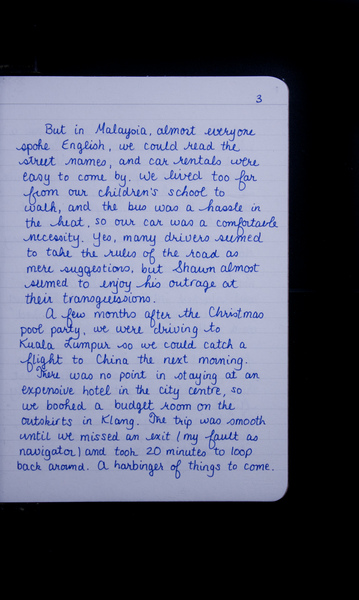 3
But in Malaysia, almost everyone
spoke English, we could read the
street names, and car rentals were
easy to come by. We lived too far
from our children's school to
walk, and the bus was a hassle in
the heat, so our car was a comfortable
necessity. Yes, many drivers seemed
to take the rules of the road as
mere suggestions, but Shawn almost
seemed to enjoy his outrage at
their transgressions.
A few months after the Christmas
pool party, we were driving to
Kuala Lumpur so we could catch a
flight to China the next morning.
There was no point in staying at an
expensive hotel in the city centre, so
we booked a budget room on the
outskirts in Klang. The trip was smooth
until we missed an exit (my fault as
navigator) and took 20 minutes to loop
back around. A harbinger of things to come.